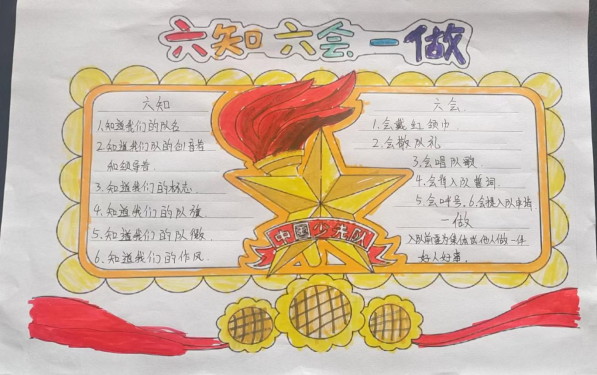 六知六会一做
六知
1.知道我们的队名
2.知道我们队的创立者
和领导者
3.知道我们的标志
4.知道我们的队旗
5.知道我们的队徽
6.知道我们的作风
六会
1.会戴红领巾
2.会敬队礼
3.会唱队歌
4.会背入队誓词
5.会呼号,6.会填入队申请
一做
入队前要为集体或他人做一件
好人好事.
中国少先队